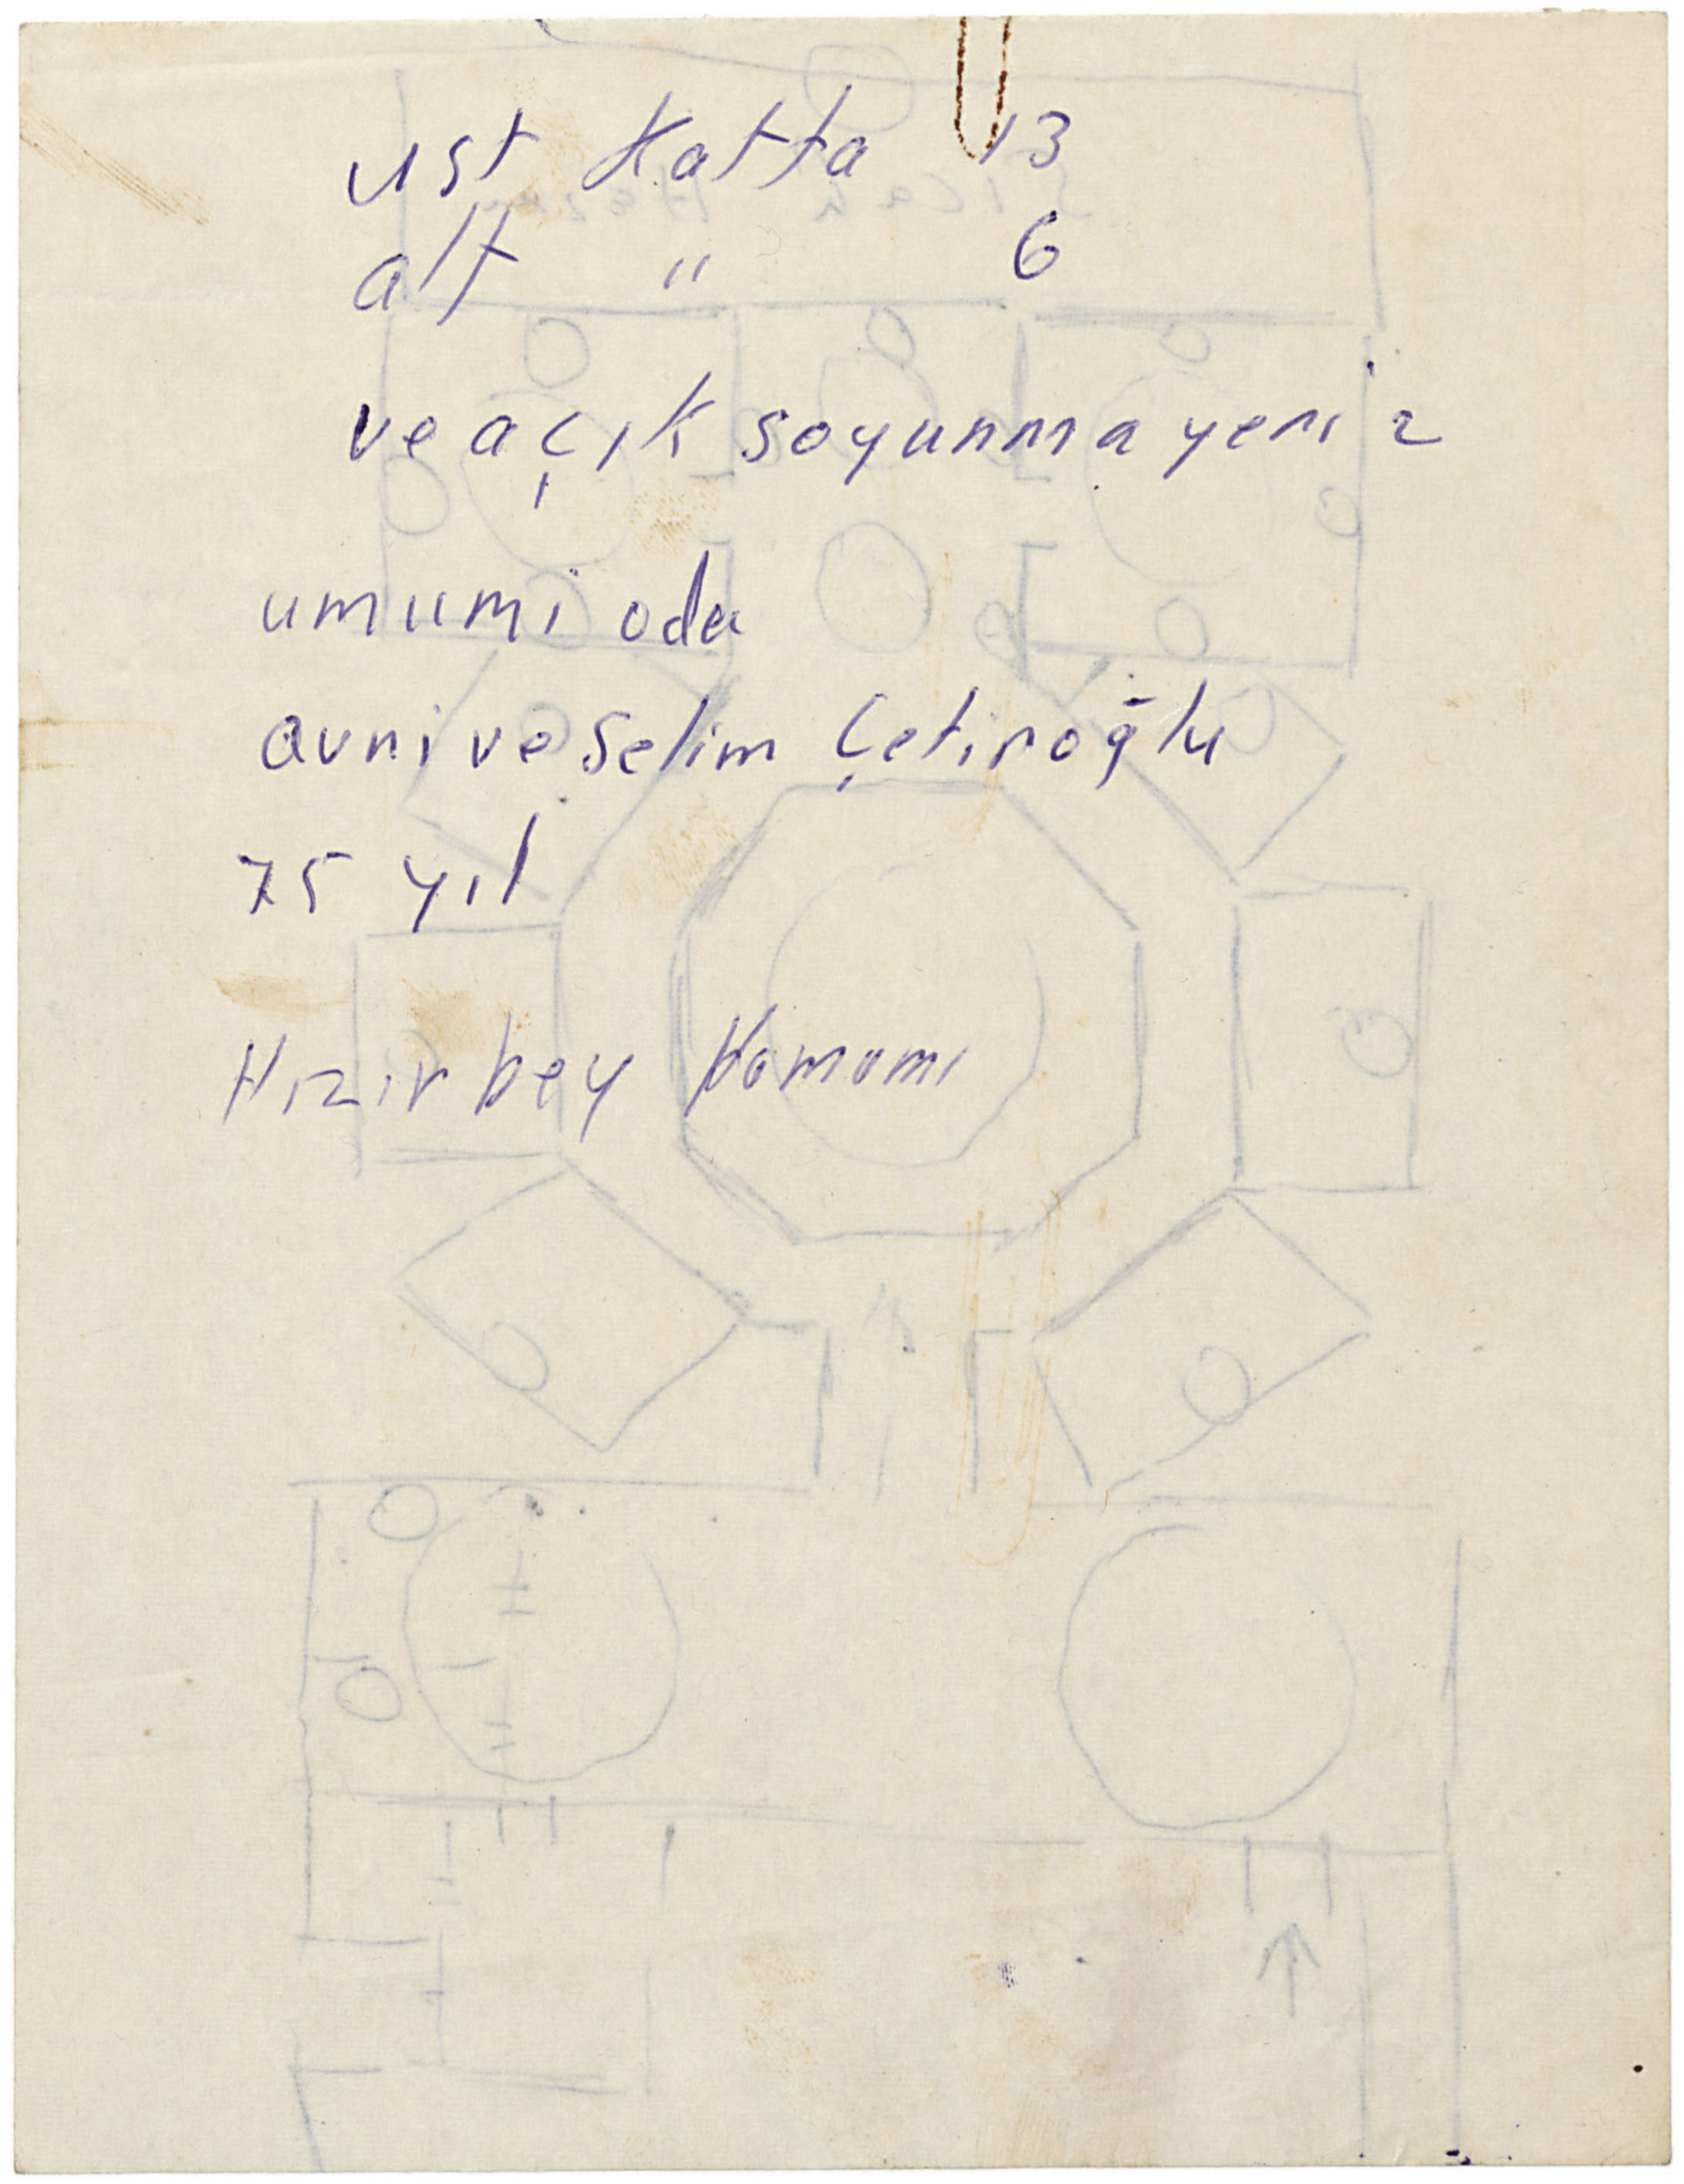 ust Katta 13
alt " 6
ve açık soyunma yeri 2
umumi oda
avni ve Selim Çetiroğlu
75 yıl
Hızır bey Hamamı